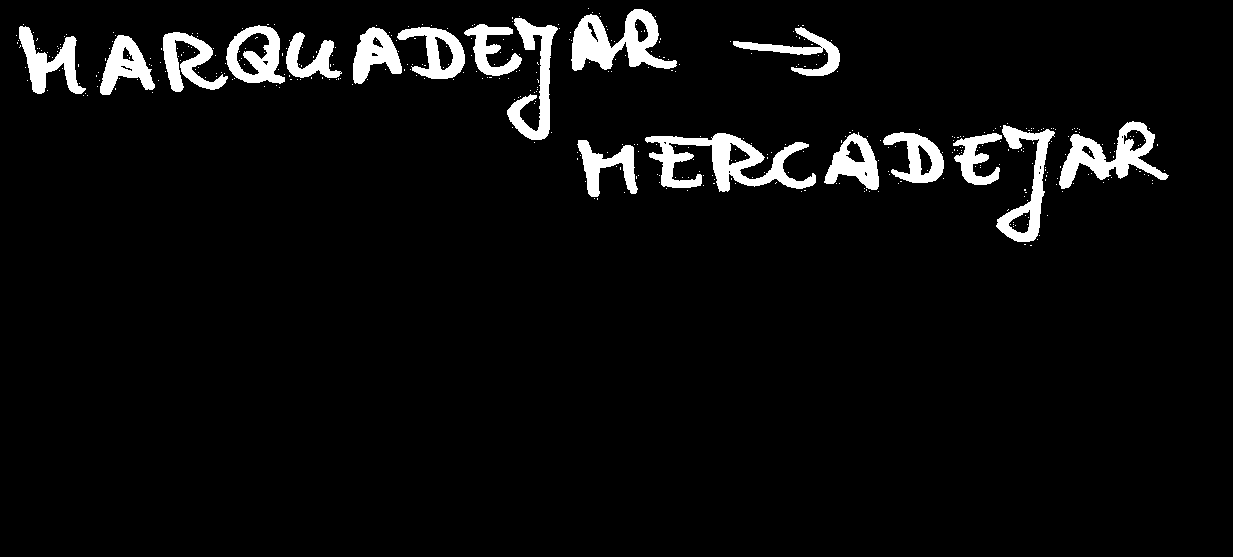 MARQUADEJAR →
MERCADEJAR